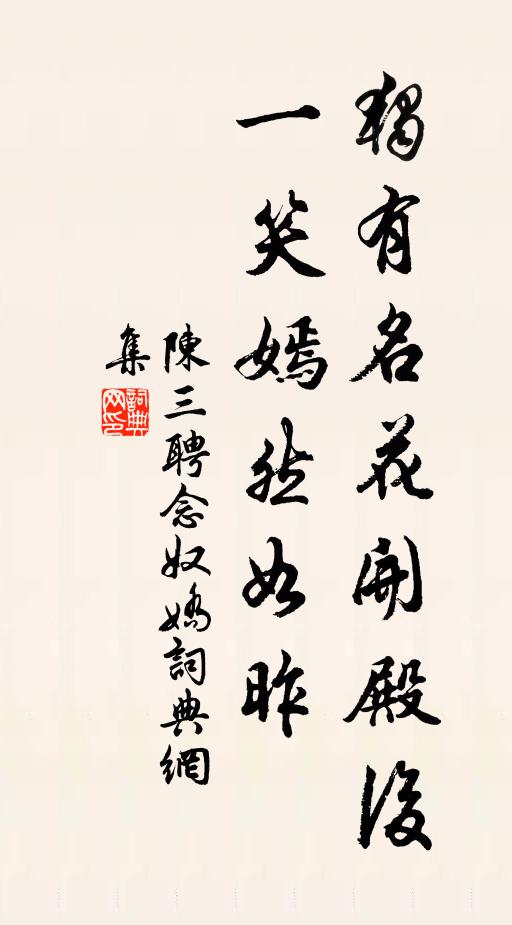 獨有名花開殿後
一笑嫣然如昨
陳三聘念奴嬌詞典網
集
詞典
网印